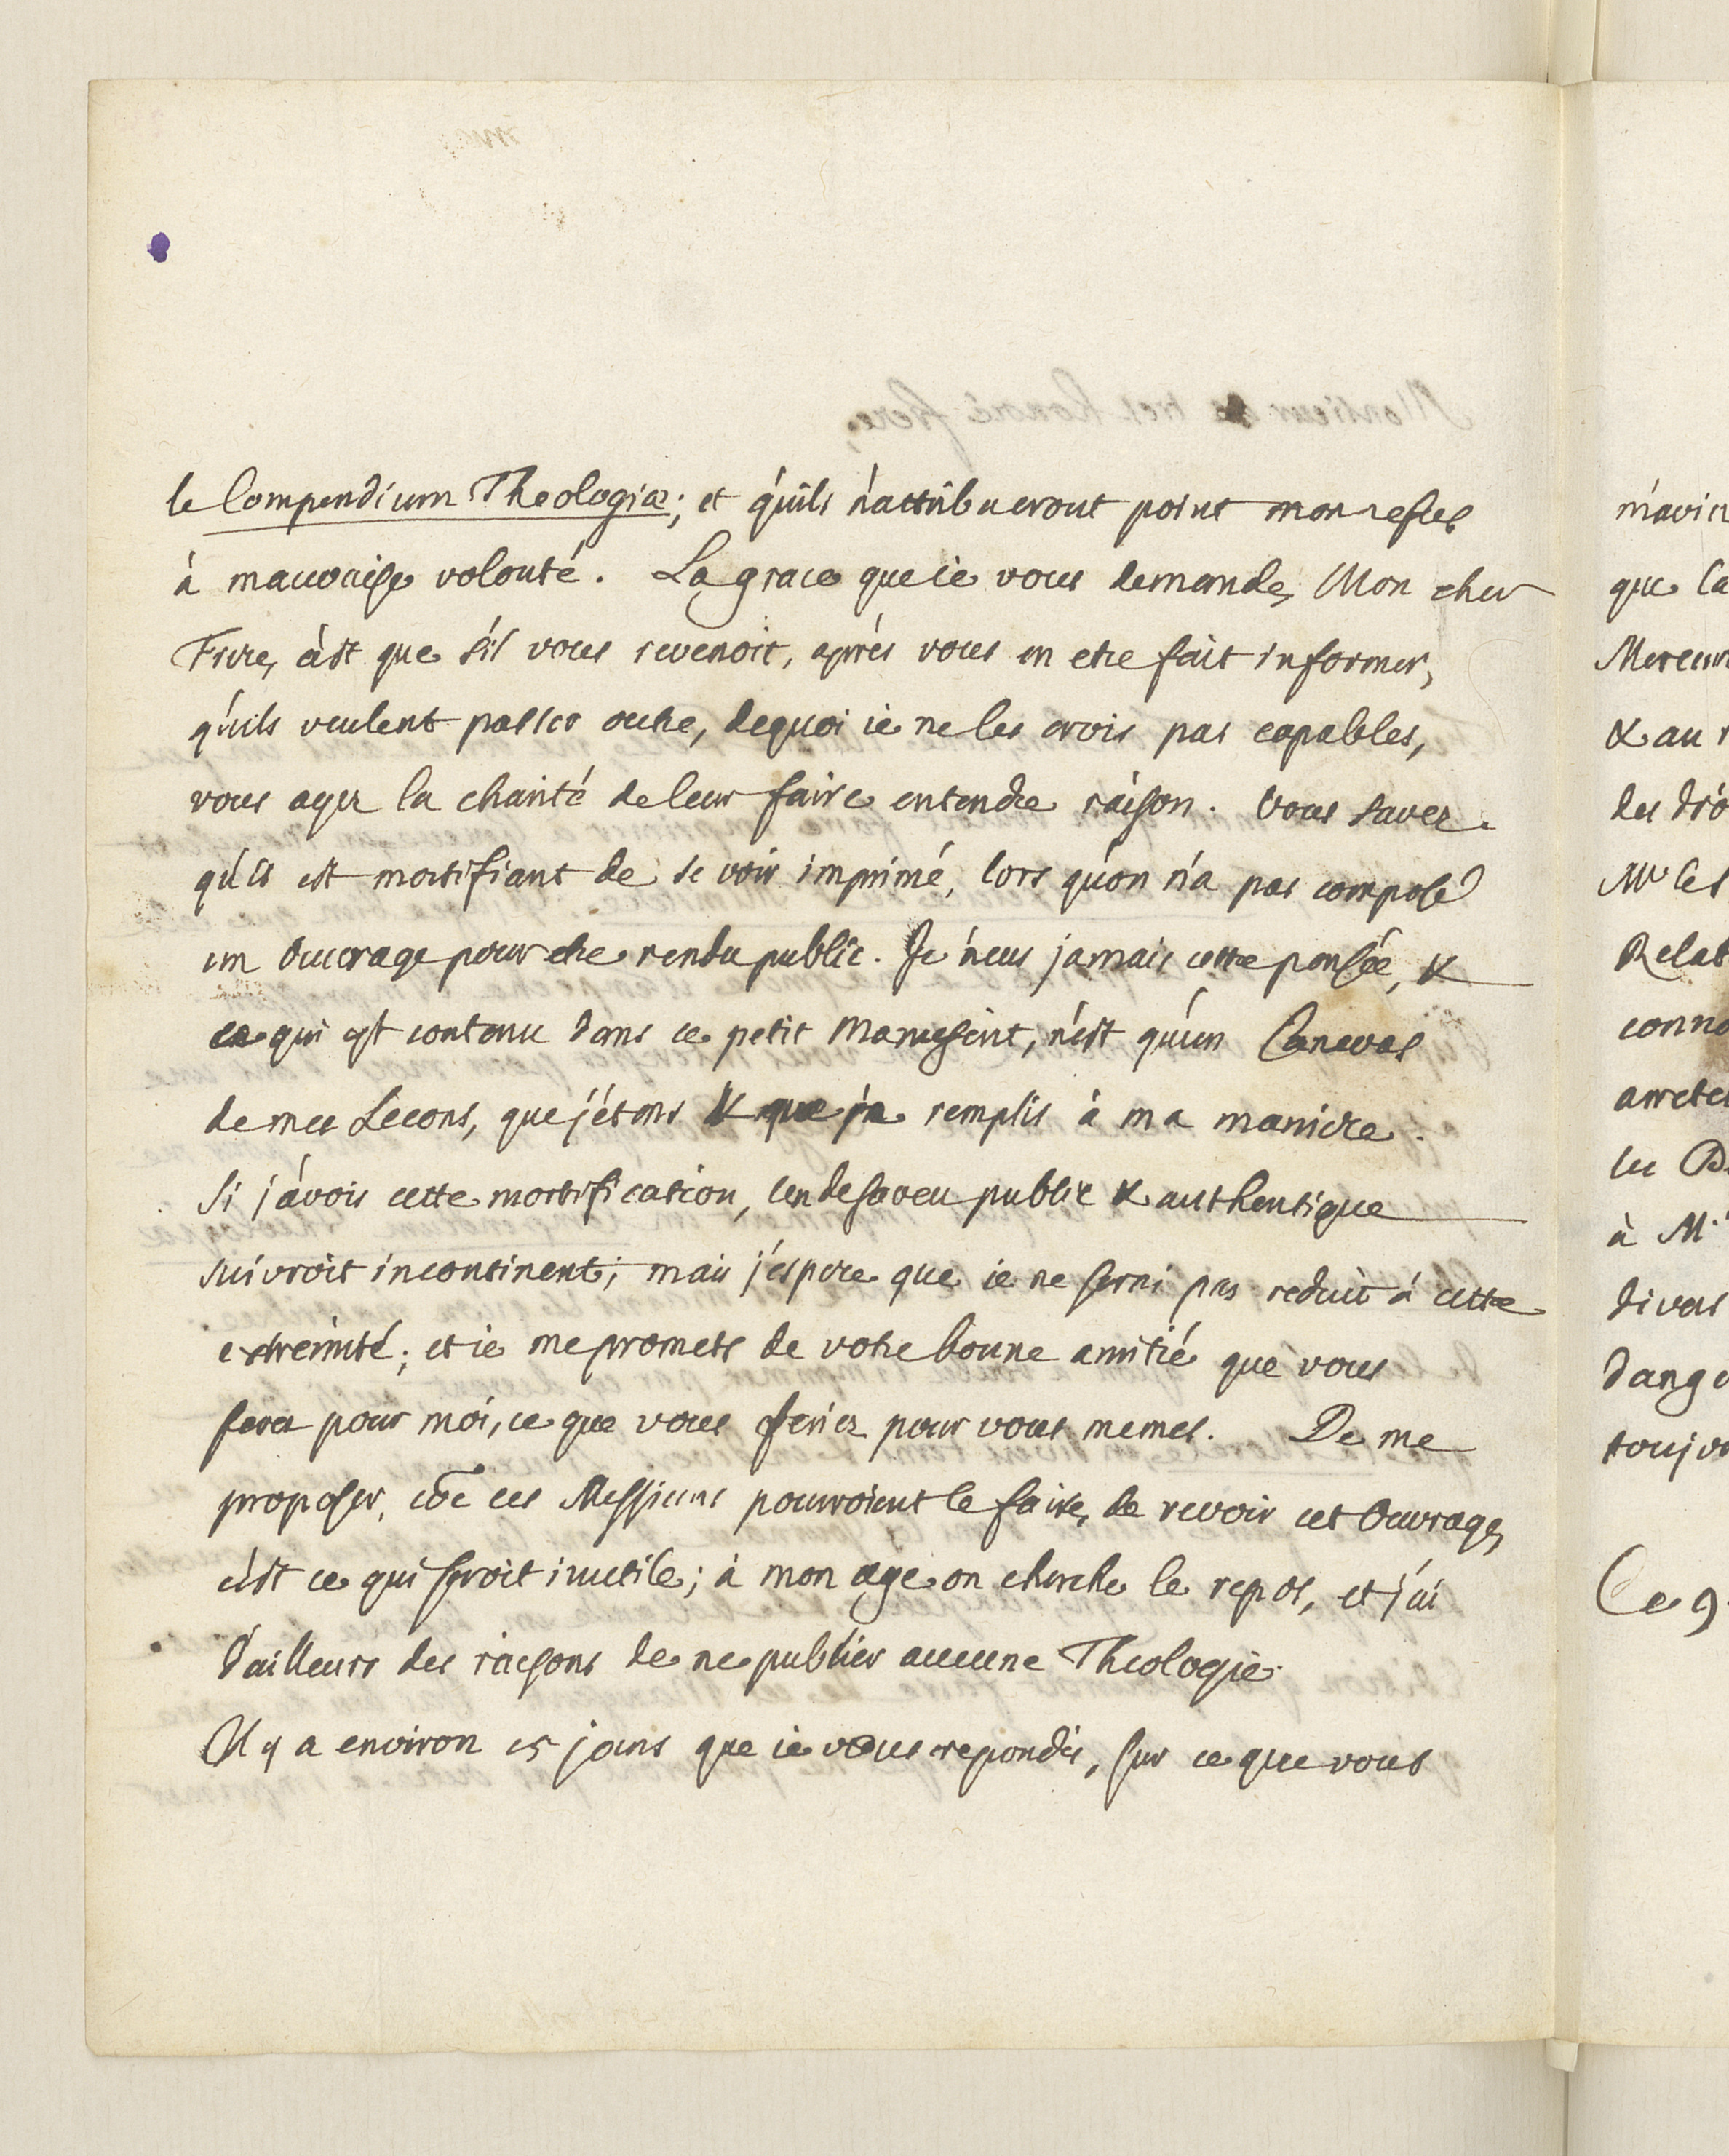 le Compendium Theologiæ; et qu'ils n'attribueront point mon refus
à mauvaise volonté. La grace que ie vous demande, Mon cher
Frere, c'est que s'il vous revenoit, aprés vous en etre fait informer,
qu'ils veulent passer outre, dequoi ie ne les crois pas capables,
vous ayez la charité de leur faire entendre raison. Vous savez
qu'il est mortifiant de se voir imprimé, lors qu'on n'a pas composé
un Ouvrage pour etre rendu public. Je n'eus jamais cette pensée, &
ce qui est contenu dans ce petit Manuscrit, n'est qu'un Canevas
de mes Lecons, que j'étens & que je remplis à ma maniere.
Si j'avois cette mortification, un desaveu public & authentique
suivroit incontinent; mais j'espere que ie ne serai pas reduit à cette
extremité; et ie me promets de votre bonne amitié que vous
ferez pour moi, ce que vous feriez pour vous memes. De me
proposer, coẽ ces Messieurs pourroient le faire, de revoir cet Ouvrage,
c'est ce qui seroit inutile; à mon age on cherche le repos, et j'ai
d'ailleurs des raisons de ne publier aucune Theologie.
Il y a environ 15 jours que ie vous repondis, sur ce que vous
que la
& au
à M.